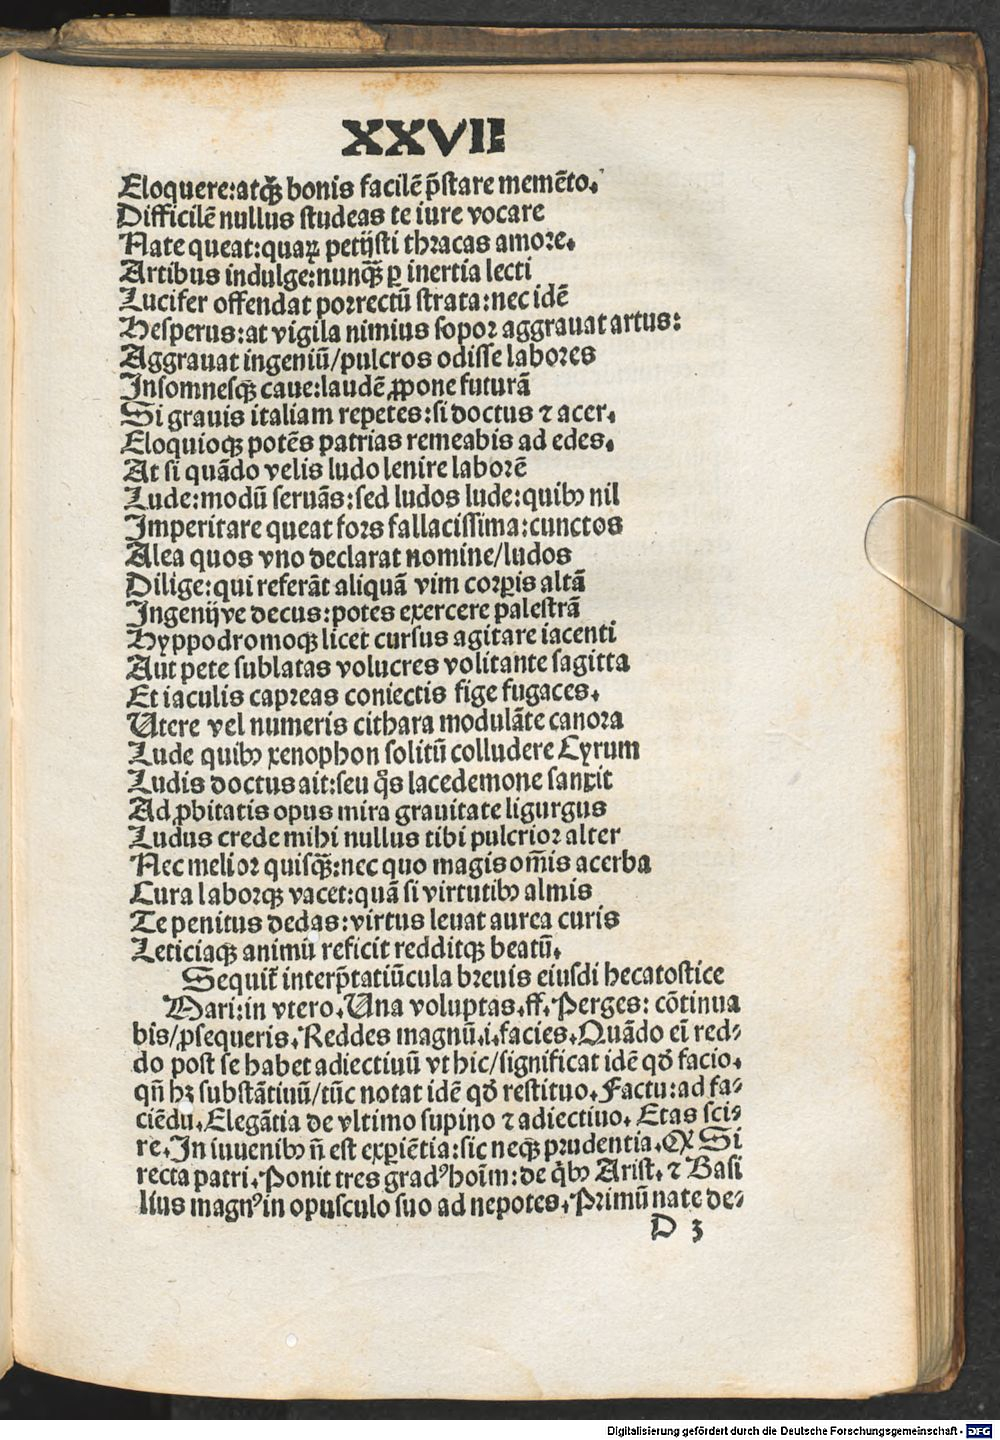 XXVII
Eloquere:atq̃ bonis facilē p̄stare memēto.
Difficilē nullus studeas te iure vocare
Nate queat:quaꝝ petijsti thracas amore.
Artibus indulge:nunq̃ ꝑ inertia lecti
Lucifer offendat porrectū strata:nec idē
Hesperus:at vigila nimius sopor aggrauat artus:
Aggrauat ingeniū/pulcros odisse labores
Insomnesqꝫ caue:laudē ꝓpone futurā
Si grauis italiam repetes:si doctus ⁊ acer.
Eloquioqꝫ potēs patrias remeabis ad edes.
At si quādo velis ludo lenire laborē
Lude:modū seruās:sed ludos lude:quibꝰ nil
Imperitare queat fors fallacissima:cunctos
Alea quos vno declarat nomine/ludos
Dilige:qui referāt aliquā vim corꝑis altā
Ingenijve decus:potes exercere palestrā
Hyppodromoqꝫ licet cursus agitare iacenti
Aut pete sublatas volucres volitante sagitta
Et iaculis capreas coniectis fige fugaces.
Utere vel numeris cithara modulāte canora
Lude quibꝰ xenophon solitū colludere Cyrum
Ludis doctus ait:seu q̄s lacedemone sanxit
Ad ꝓbitatis opus mira grauitate ligurgus
Ludus crede mihi nullus tibi pulcrior alter
Nec melior quisq̃:nec quo magis om̄is acerba
Cura laborqꝫ vacet:quā si virtutibꝰ almis
Te penitus dedas:virtus leuat aurea curis
Leticiaqꝫ animū reficit redditqꝫ beatū.
Sequit᷑ interp̄tatiūcula breuis eiusdi hecatostice
Mari:in vtero.Una voluptas.ff.Perges: cōtinua
bis/ꝓsequeris.Reddes magnū.i.facies.Quādo eī red⸗
do post se habet adiectiuū vt hic/significat idē qđ facio.
qn̄ hꝫ substātiuū/tūc notat idē qđ restituo.Factu:ad fa⸗
ciēdū.Elegātia de vltimo supino ⁊ adiectiuo. Etas sci⸗
re.In iuuenibꝰ n̄ est exꝑiētia:sic neqꝫ prudentia.Qꝫ Si
recta patri.Ponit tres gradꝰ hoīm:de q̄bꝰ Arist. ⁊ Basi
lius magnꝰ in opusculo suo ad nepotes.Primū nate de⸗
D 3
Digitalisierung gefördert durch die Deutsche Forschungsgemeinschaft - DFG